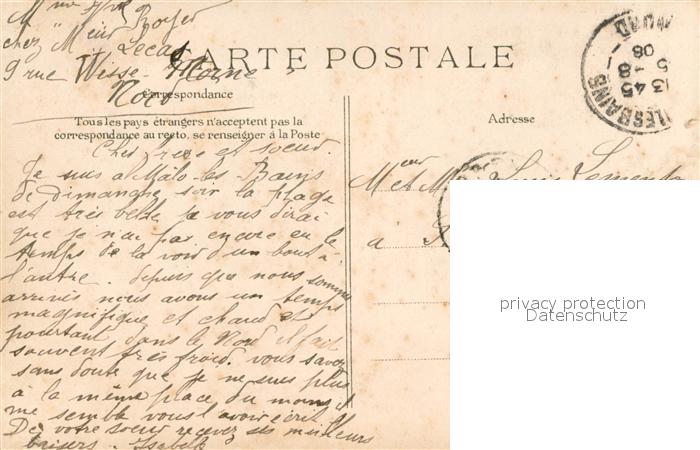 Mme
chez Meur Lecas
9 rue Wisse-Morne
Nord
CARTE POSTALE
Correspondance
Tous les pays étrangers n'acceptent pas la
correspondance au recto, se renseigner à la Poste
Cher frere et soeur.
Je suis a Malo-les-Bains
de dimanche soir la plage
est très belle je vous dirai
que je n'ai pas encore eu le
temps de la voir d'un bout à
l'autre. depuis que nous sommes
arrivés nous avons un temps
magnifique et chaud et
pourtant dans le Nord il fait
souvent très froid. vous savez
sans doute que je ne suis plus
à la même place du moins il
me semble vous l'avoir écrit.
De votre soeur recevez ses meilleurs
baisers. Isabelle
Adresse
Meur et Mme
a
13 45
5 - 8
08
LES BAINS
NORD
privacy protection
Datenschutz